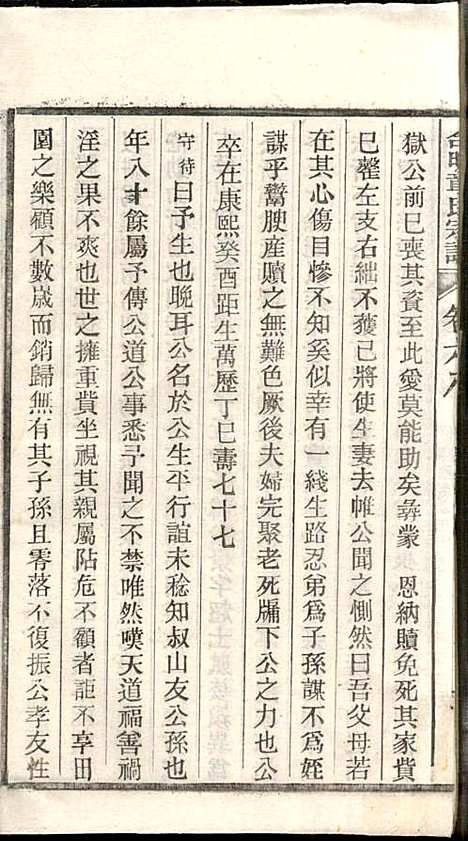 獄公前已喪其資至此愛莫能助矣彝蒙　恩納贖免死其家貲
已罄左支右絀不獲已將使生妻去帷公聞之惻然曰吾父母若
在其心傷目慘不知奚似幸有一綫生路忍第爲子孫謀不爲姪
謀乎鬻腴産贖之無難色厥後夫婦完聚老死牖下公之力也公
卒在康熙癸酉距生萬歷丁巳壽七十七
守待曰予生也晚耳公名於公生平行誼未稔知叔山友公孫也
年八十餘屬予傳公道公事悉予聞之不禁唯然嘆天道福善禍
淫之果不爽也世之擁重貲坐視其親屬阽危不顧者詎不享田
園之樂顧不數歲而銷歸無有其子孫且零落不復振公孝友性
章氏宗譜
卷六